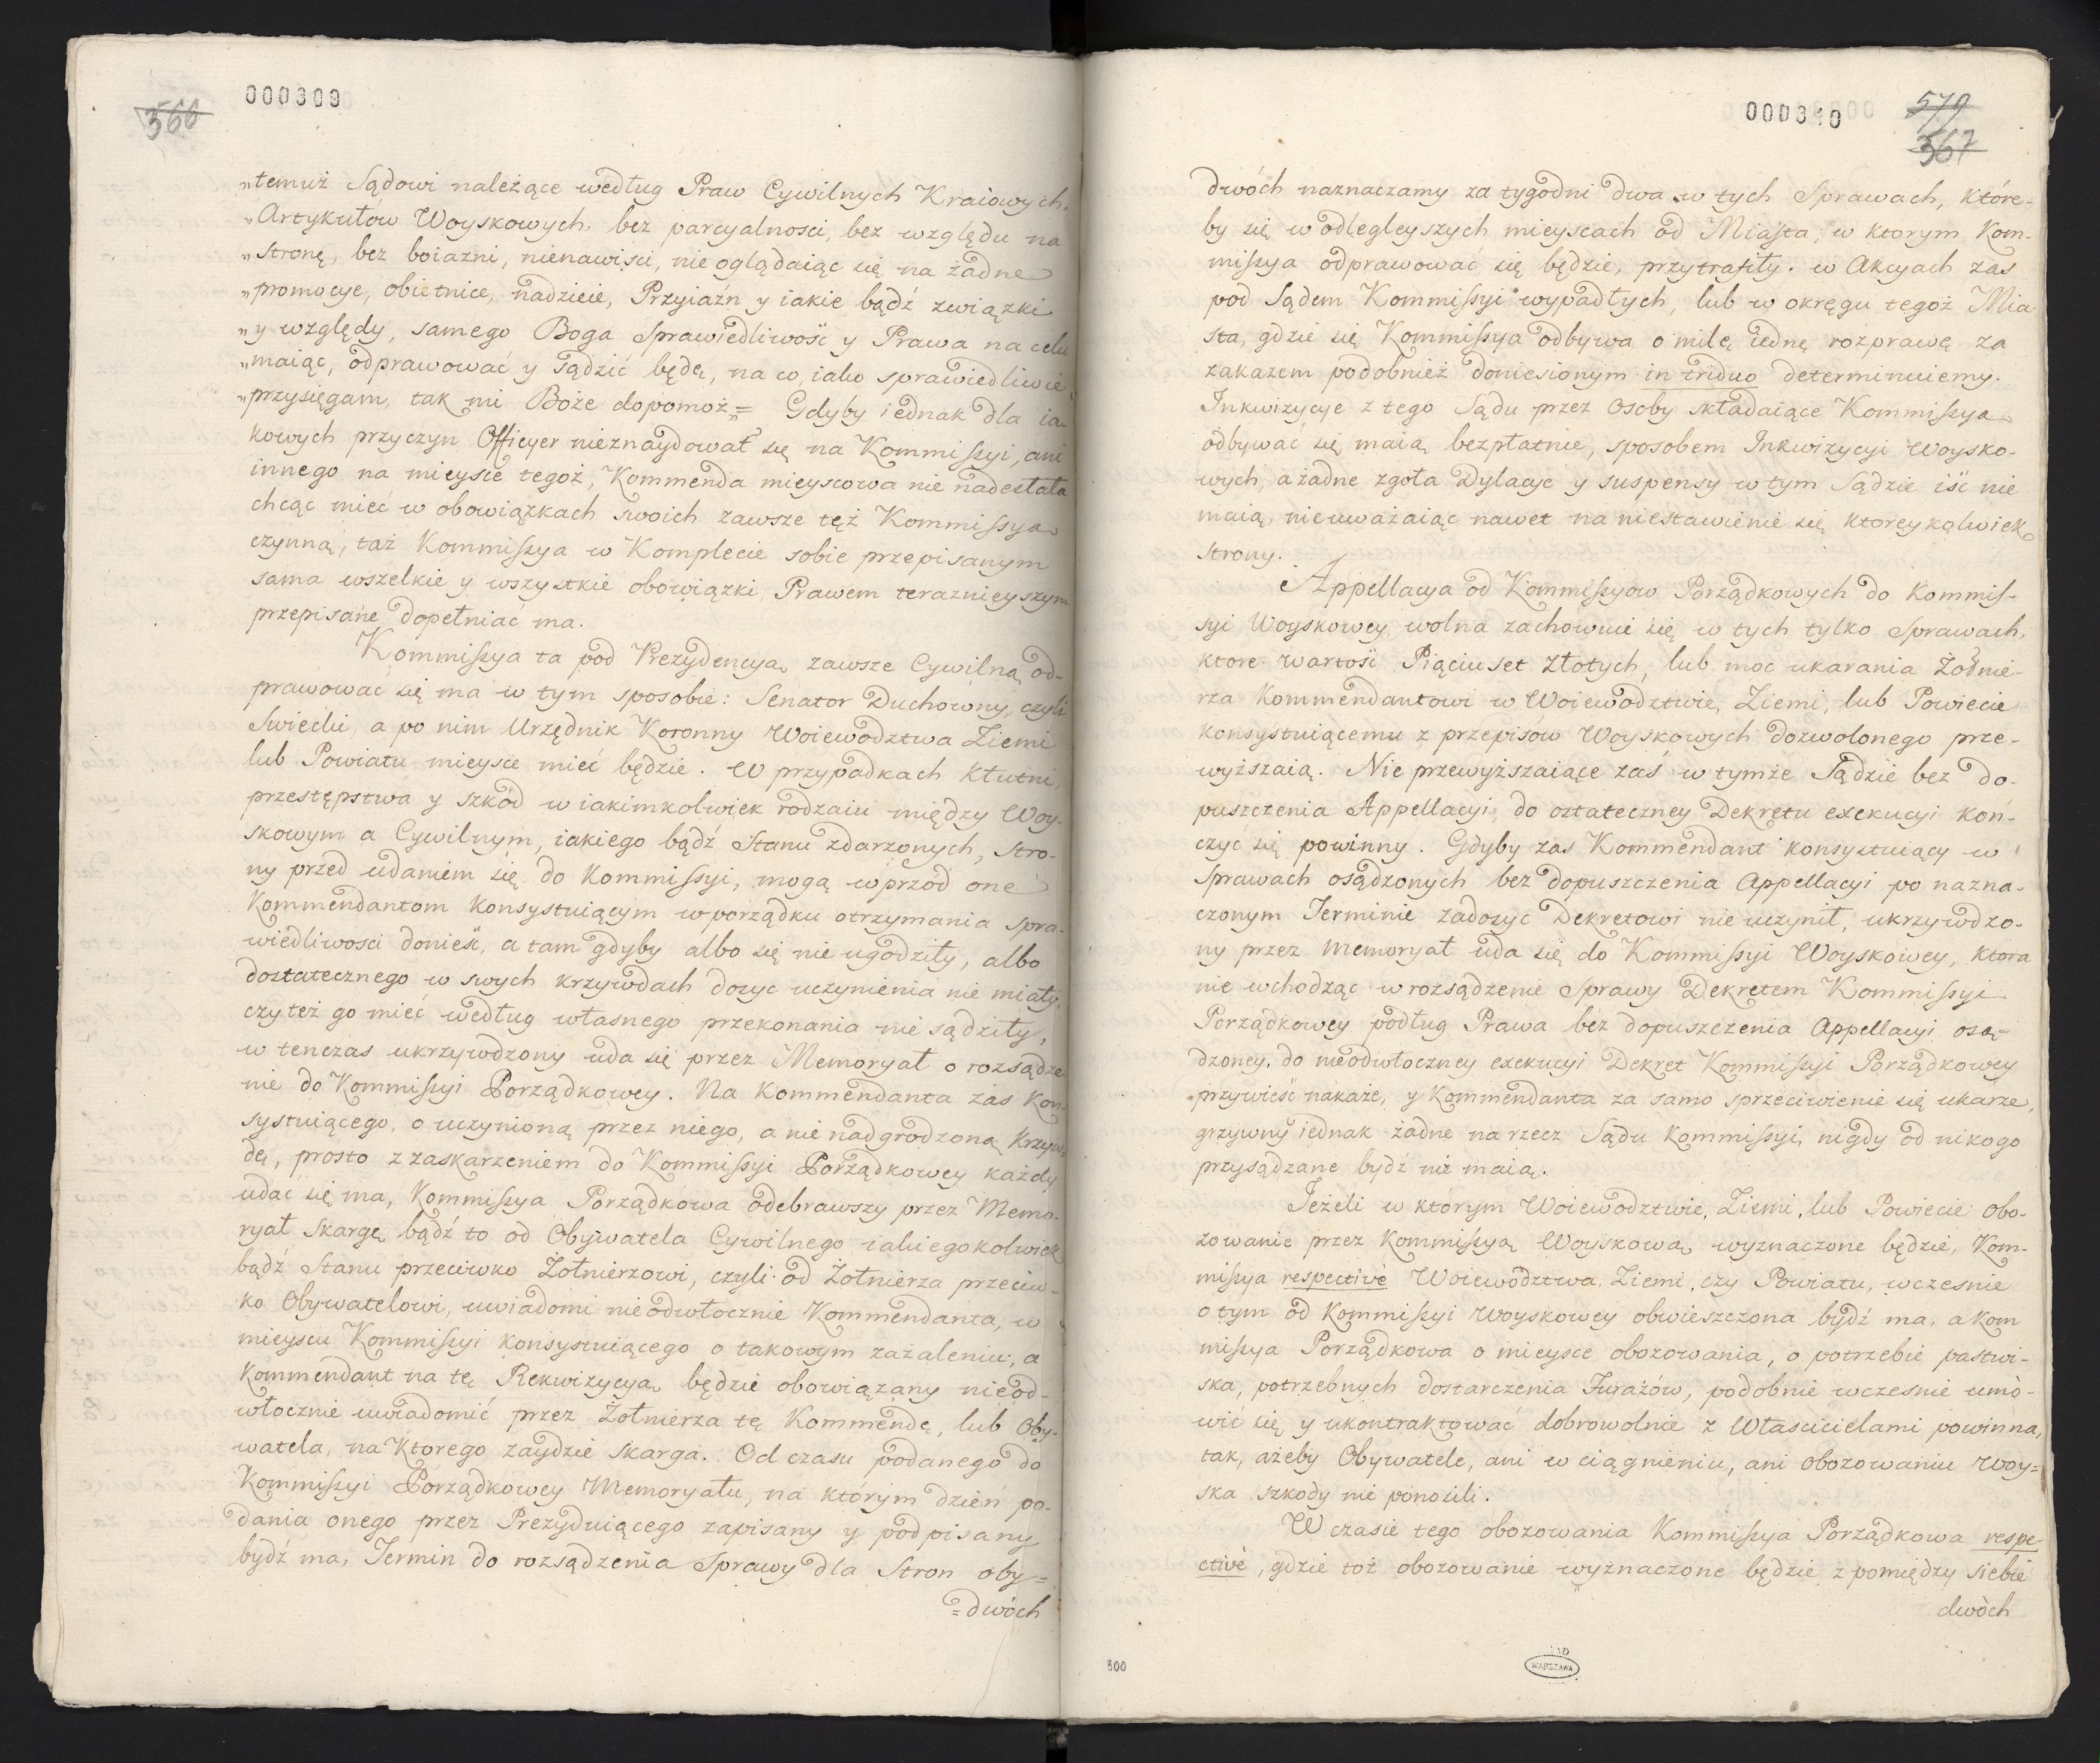 000309
566
„temuż Sądowi należące według Praw Cywilnych Kraiowych,
„Artykułów Woyskowych, bez parcyalnosci, bez względu na
„stronę, bez boiazni, nienawiści, nie oglądaiąc się na żadne
„promocye, obietnice, nadzieie, Przyiaźn y iakie bądź związki
„y względy, samego Boga Sprawiedliwość y Prawa na celu
„maiąc, odprawować y sądzić będę, na co, iako sprawiedliwie
„przysięgam, tak mi Boże dopomoż„= Gdyby iednak dla ia-
kowych przyczyn Officyer nieznaydował się na Kommissyi, ani
innego na mieysce tegoż, Kommenda mieyscowa nie nadesłała
chcąc mieć w obowiązkach swoich zawsze też Kommissya
czynną, taż Kommissya w Komplecie sobie przepisanym
sama wszelkie y wszystkie obowiązki Prawem teraznieyszym
przepisane dopełniać ma.
Kommissya ta pod Prezydencyą zawsze Cywilną od-
prawować się ma w tym sposobie: Senator Duchowny, czyli
Swiecki, a po nim Urzędnik Koronny Woiewodztwa Ziemi
lub Powiatu mieysce mieć będzie. W przypadkach Kłutni,
przestępstwa y szkód w iakimkolwiek rodzaiu między Woy-
skowym a Cywilnym, iakiego bądź Stanu zdarzonych, stro-
ny przed udaniem się do Kommissyi, mogą wprzód one
Kommendantom Konsystuiącym w porządku otrzymania spra-
wiedliwosci donieść, a tam gdyby albo się nie ugodziły, albo
dostatecznego w swych krzywdach dosyc uczynienia nie miały,
czy też go mieć według własnego przekonania nie sądziły,
w tenczas ukrzywdzony uda się przez Memoryał o rozsądze-
nie do Kommissyi Porządkowey. Na Kommendanta zas Kon-
systuiącego, o uczynioną przez niego, a nie nadgrodzoną Krzyw-
dę, prosto z zaskarzeniem do Kommissyi Porządkowey każdy
udac się ma, Kommissya Porządkowa odebrawszy przez Memo-
ryał Skargę bądź to od Obywatela Cywilnego iakiegokolwiek
bądź Stanu przeciwko Żołnierzowi, czyli od Żołnierza przeciw-
ko Obywatelowi, uwiadomi nieodwłocznie Kommendanta, w
mieyscu Kommissyi konsystuiącego o takowym zażaleniu, a
Kommendant na tę Rekwizycyą będzie obowiązany nieod-
włocznie uwiadomić przez Żołnierza tę Kommendę, lub Oby-
watela, na Ktorego zaydzie skarga. Od czasu podanego do
Kommissyi Porządkowey Memoryału, na którym dzień po-
dania onego przez Prezyduiącego zapisany y podpisany
bydź ma, Termin do rozsądzenia Sprawy dla Stron oby=
=dwóch
000310
579
367
dwóch naznaczamy za tygodni dwa w tych Sprawach, które-
by się w odlegleyszych mieyscach od Miasta, w ktorym Kom-
missya odprawować się będzie, przytrafiły. w Akcyach zas
pod Sądem Kommissyi wypadłych, lub w okręgu tegoż Mia-
sta, gdzie się Kommissya odbywa o milę iednę rozprawę za
zakazem podobnież doniesionym in triduo determinuiemy.
Inkwizycye z tego Sądu przez Osoby składaiące Kommissyą
odbywać się maią bezpłatnie, sposobem Inkwizycyi Woysko-
wych, a żadne zgoła Dylacye y suspensy w tym Sądzie iść nie
maią, nieuważaiąc nawet na niestawienie się ktoreykolwiek
strony.
Appellacya od Kommissyow Porządkowych do Kommis-
syi Woyskowey wolna zachowuie się w tych tylko Sprawach,
ktore wartość Piąciuset Złotych, lub moc ukarania Żołnie-
rza Kommendantowi w Woiewodztwie, Ziemi, lub Powiecie
konsystuiącemu z przepisów Woyskowych dozwolonego prze-
wyższaią. Nie przewyższaiące zaś w tymże Sądzie bez do-
puszczenia Appellacyi, do ostateczney Dekretu exekucyi koń-
czyć się powinny. Gdyby zas Kommendant konsystuiący w
Sprawach osądzonych bez dopuszczenia Appellacyi po nazna-
czonym Terminie zadosyc Dekretowi nie uczynił, ukrzywdzo-
ny przez Memoryał uda się do Kommissyi Woyskowey, ktora
nie wchodząc w rozsądzenie Sprawy Dekretem Kommissyi
Porządkowey podług Prawa bez dopuszczenia Appellacyi osą-
dzoney, do nieodwłoczney exekucyi Dekret Kommissyi Porządkowey
przywieść nakaże, y Kommendanta za samo sprzeciwienie się ukarze,
grzywny iednak żadne na rzecz Sądu Kommissyi, nigdy od nikogo
przysądzane bydź nie maią.
Jeżeli w którym Woiewodztwie, Ziemi, lub Powiecie obo-
zowanie przez Kommissyą Woyskową wyznaczone będzie, Kom-
missya respectivè Woiewodztwa, Ziemi, czy Powiatu, wczesnie
o tym od Kommissyi Woyskowey obwieszczona bydź ma, a Kom
missya Porządkowa o mieysce obozowania, o potrzebie pastwi-
ska, potrzebnych dostarczenia Furażów, podobnie wczesnie umó-
wić się y ukontraktować dobrowolnie z Własciecielami powinna,
tak, ażeby Obywatele, ani w ciągnieniu, ani obozowaniu Woy=
ska szkody nie ponosili.
W czasie tego obozowania Kommissya Porządkowa respe-
ctivè, gdzie toż obozowanie wyznaczone będzie, z pomiędzy siebie
dwòch
300
WARSZAWA